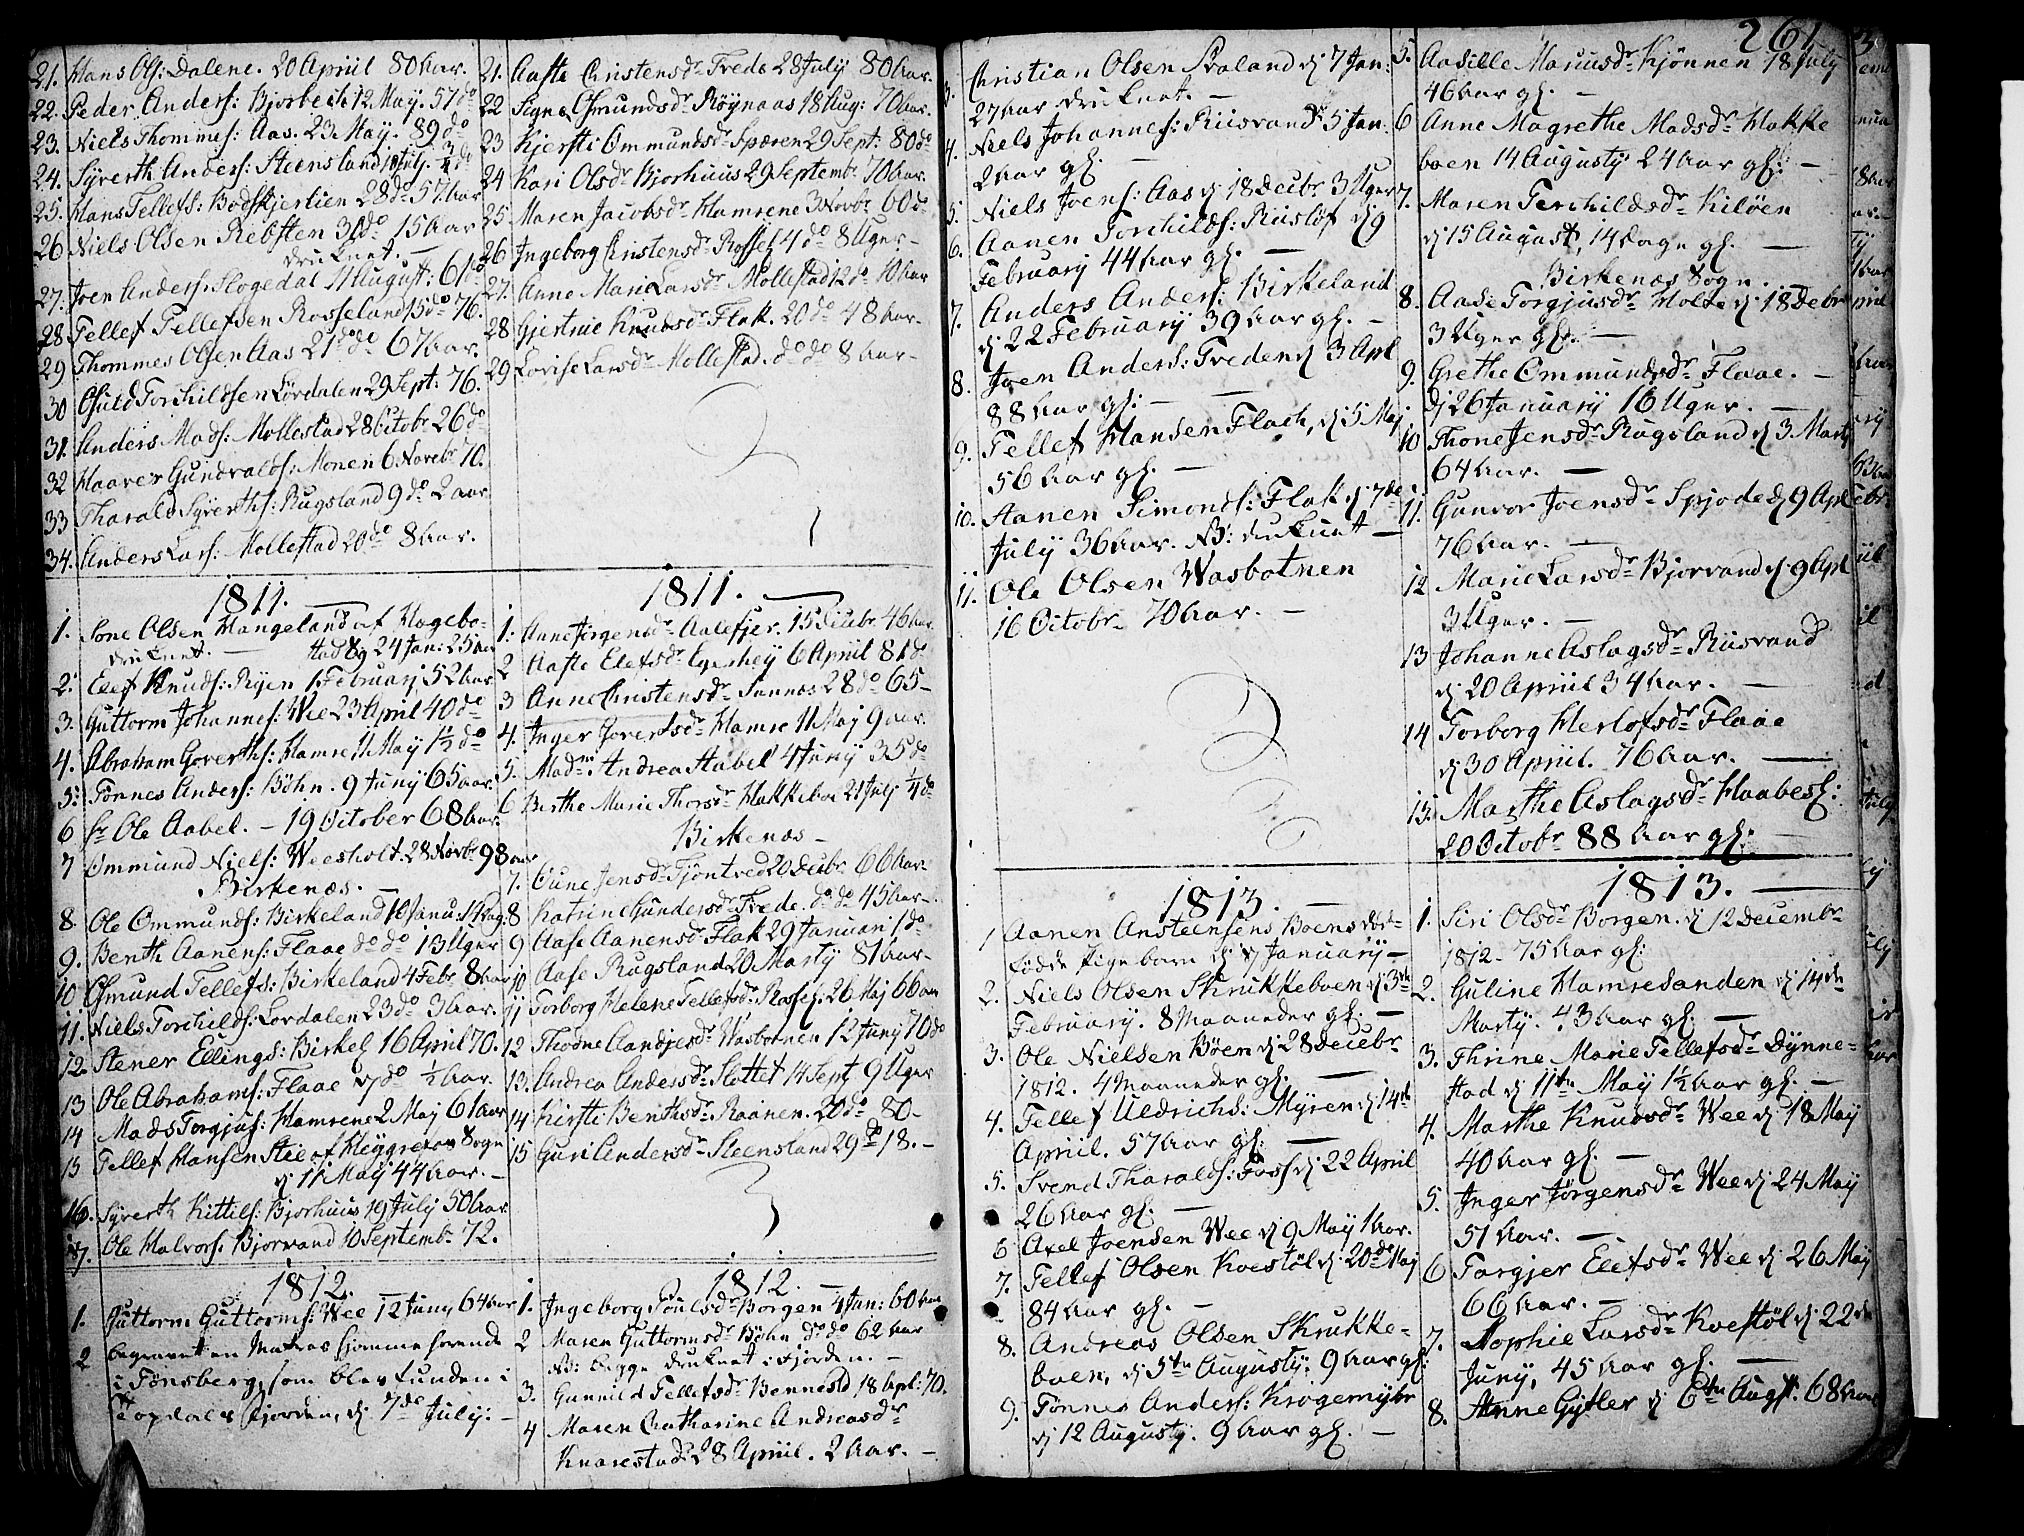 21. Hans Ols: Dalene. 20 Apriil 80 Aar.
22. Peder Anders: Bjorbech 12 May. 57 do
23. Niels Thommes: Aas. 23 May. 89 do
24. Syverth Anders: Steensland July. do
25. Hans Tellefs: Bodskjerlien 28 do 57 Aar
26 Niels Olsen Rebsten 31 do 15 Aar
druknet. —
27. Joen Anders: Flogedal 11 August: 61 do
28 Tellef Tellefsen Rosseland 15 do 76.
29 Thommes Olsen Aas 21 do 67 Aar.
30 Osuld Torchildsen Lördalen 29 Sept: 76.
31. Anders Mads: Mollestad 28 Octobr 26 do
32 Haaver Gundvalds: Monen 6 Novebr 70.
33 Tharald Syverths: Rugsland 9 do 2 aar
34. Anders Lars: Mollestad 20 do 8 Aar.
1811. —
1. Sone Olsen Hangeland af Hægebo-
druknet. — stad Sg 24 Jan: 25 Aar
2. Elef Knuds: Ryen 1. February 52 Aar
3. Guttorm Johannes: Wee 23 April 40 do
4. Abraham Goverths: Hamre 11 May 1½ do
5. Tønnes Anders: Böhn. 9 Juny 65 Aar.
6 Hr Ole Aabel. — 19 October 68 Aar.
7 Ommund Niels: Weesholt. 28 Novbr 98 aar
Birkenæs. —
8. Ole Ommunds: Birkeland 16 Janu: 14 Dag:
9. Benth Aanens: Flaae do do 13 Uger
10 Osmund Tellefs: Birkeland 4 Febr 8 Aar
11. Niels Torchilds: Lordalen 23 do 3 Aar.
12. Stener Ellings: Birkel 16 April 70.
13 Ole Abrahams: Flaae 17 do ½ Aar.
14 Mads Torgjus: Hamrene 2 May 61 Aar
15 Tellef Hansen Stie af Heyggeren Sogn
d 11 May 44 Aar. —
16. Syverth Kittils: Bjorhuus 19 July 50 Aar
17. Ole Halvors: Bjorvand 10 Septembr 72.
1812.
1. Guttorm Guttorms: Wee 12 Juny 64 Aar
2 begravet en Matros hjemmehørende
i Tønsberg, som blev funden i
Topdals Fjorden, d 7de July: —
21. Aaste Christensdr Trede 28 July 80 Aar.
22 Signe Osmundsdr Röynaas 18 Aug: 70 Aar.
23 Kjersti Ommundsdr Spæren 29 Sept: 80 do
24 Kari Olsdr Bjorhuus 29 Septembr 70 Aar.
25 Maren Jacobsdr Hamrene 3 Novbr 60 do
26 Ingeborg Christensdr Rossel 4 do 8 Uger —
27. Anne Marie Larsdr Mollestad 12 do 10 Aar
28 Gjertrue Knudsdr Flak. 20 do 48 Aar.
29 Lovise Larsdr Mollestad. do do 8 Aar —
1811. —
1. Anne Jörgensdr Aalefjer. 15 Decebr. 46 Aar.
2 Aaste Elefsdr Egehey 6 April 81 do
3 Anne Christensdr Sannæs 28 do 65 —
4. Inger Govertsdr Hamre 11 May 9 aar.
5. Madm Andrea Aabel 4 Juny 35 do
6 Berthe Marie Thorsdr Hakkeboe 21 July ¼ do
Birkenæs —
7. Oune Jensdr Tjöntved 20 Decebr. 66 Aar.
8 Katrine Gundersdr Trede. do do 45 Aar —
9 Aase Aanensdr Flak 29 Januari 1 do
10 Aase Rugsland 20 Marty 81 Aar —
11 Torborg Helene Tellefsdr Rossel: 26 May 66 aar
12 Thodne Aandjersdr Wasbotnen 12 Juny 70 do
13. Andrea Andersdr Slottet 14 Sept 9 Uger
14 Kirsti Benthsdr Raanen. 20 do 80 —
15 Guri Andersdr Steensland 29 do 18. —
1812. —
1. Ingeborg Poulsdr Borgen 4 Jan: 60 Aar
2 Maren Guttormsdr Böhn do do 62 Aar
NB: begge druknet i Fjorden. —
3. Gunnild Tellefsdr Bennestd 18 Apl: 70.
4 Maren Catharine Andreasdr
Knarestad 28 Apriil. 2 Aar. —
3. Christian Olsen Svaland d 7 Jan:
27 Aar druknet. —
4. Niels Johannes: Riisvand 5 Jan.
2 Aar gl. —
5. Niels Joens: Aas d 18 Decbr. 3 Uger
6. Aanen Torchilds: Riisløf d 9
February 44 Aar gl. —
7. Anders Anders: Birkeland
d 22 February 39 Aar gl. —
8. Joen Anders: Treden d 3 Apl
88 Aar gl: —
9. Tellef Hansen Flach, d 5 May
56 Aar gl. —
10. Aanen Simonds: Flak d 7de
July 36 Aar. NB: druknet —
11. Ole Olsen Wasbotnen
16 Octobr 70 Aar. —
1813. —
1 Aanen Ansteensens Boens død-
födde Pigebarn d 17 January —
2. Niels Olsen Skrukkeboen d 3de
February. 8 Maaneder gl. —
3. Ole Nielsen Böen d 28 Decebr
1812. 4 Maaneder gl. —
4. Tellef Uldrichs: Myren d 14de
Apriil. 57 Aar gl. —
5. Svend Tharalds: Foss d 22 April
26 Aar gl. —
6 Axel Joensen Wee d 9 May 1 Aar.
7. Tellef Olsen Koestöl d 20de May
84 Aar gl. —
8. Andreas Olsen Skrukke-
boen, d 5te Augusty. 9 Aar gl:
9. Tønnes Anders: Krogemyhr
d 12 Augusty. 9 Aar gl. —
261
5. Aasille Mariusdr Kjønnen 18 July
46 Aar gl. —
6 Anne Magrethe Madsdr Hakke
boen 14 Augusty 24 Aar gl. —
7. Maren Terchildsdr Kiløen
d 15 August, 14 Dage gl. —
Birkenæs Sogn.
8. Aase Torgjusdr Holte d 18 Debr
3 Uger gl. —
9. Grethe Ommundsdr Flaae. —
d 26 January 16 Uger. —
10 Thone Jensdr Rugsland d 3. Marty
64 Aar. —
11. Gunvor Joensdr Spjode d 9 Apl
76 Aar. —
12 Marie Larsdr Bjorvand d 9 Apl
3 Uger. —
13 Johanne Aslagsdr Riisvand
d 20 Apriil 34 Aar. —
14 Torborg Herlofsdr Flaae
d 30 Apriil. 76 Aar. —
15. Marthe Aslagsdr Haabesl:
20 Octobr 88 Aar gl: —
1813. —
1. Siri Olsdr Borgen. d 12 Decembr
1812. 75 Aar gl:
2. Guline Hamresanden d 14de
Marty. 43 Aar gl. —
3. Thrine Marie Tellefsdr Dynne-
stad d 11te May 1½ Aar gl. —
4. Marthe Knudsdr Wee d 18 May
40 Aar gl. —
5. Inger Jörgensdr Wee d 24 May
51 Aar. —
6 Torgjer Elefsdr Wee d 26 May
66 Aar. —
7. Sophie Larsdr Koestöl d 22de
Juny, 45 Aar gl. —
8. Anne Gytler d 6te Augst. 68 Aar